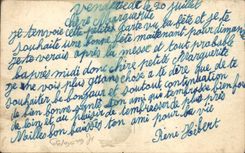 Vendredi le 20 juillet
Chère Marguerite
Je t'envoie cette petite carte vu ta fête et je te
souhaite une bonne fête maintenant pour dimanche
Je te verais après la messe et tout probable
l'après midi donc chère petite Marguerite
je ne vois plus grand chose a te dire que de te
souhaiter le bonheur et surtout continuation
de bon
de loin et au plaisir de t'embrasser de plus près
Mailles bon baisers ton ami pour la vie
René Hébert